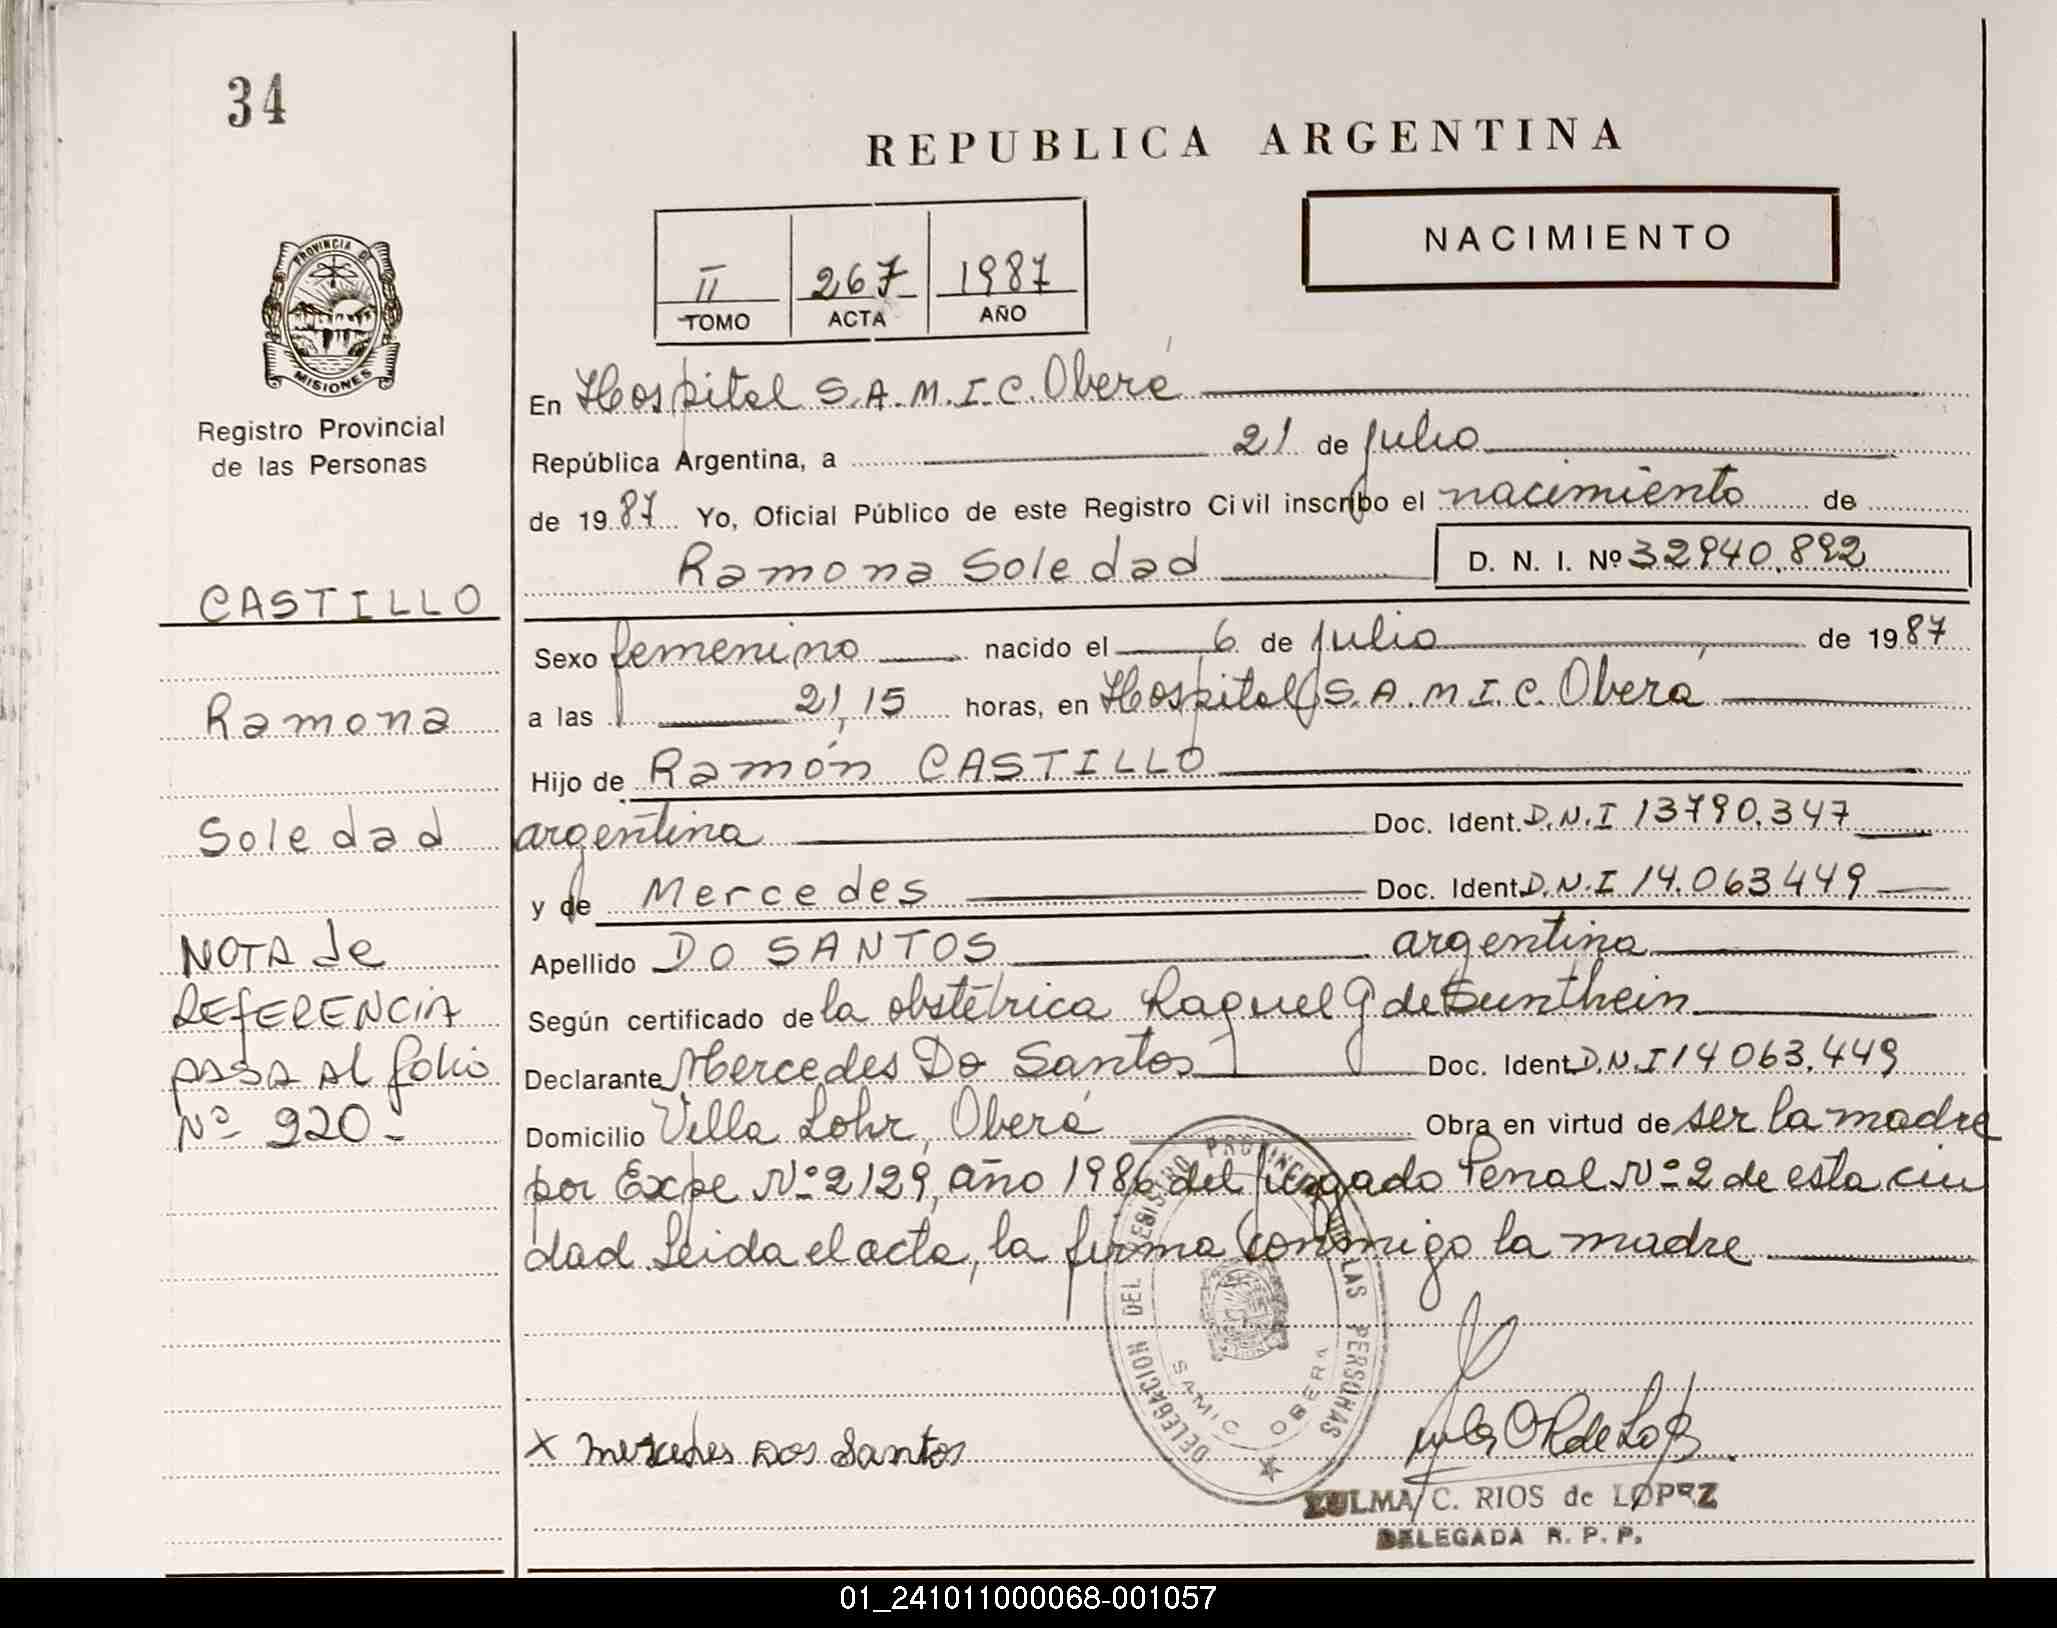 34
REPUBLICA ARGENTINA
NACIMIENTO
II 267 1987
TOMO ACTA AÑO
PROVINCIA DE
MISIONES
Registro Provincial
de las Personas
En Hospital S.A.M.I.C. Oberá
República Argentina, a 21 de julio
de 1987 Yo, Oficial Público de este Registro Civil inscribo el nacimiento de
Ramona Soledad D. N. I. Nº 32940.892
CASTILLO
Ramona
Soledad
NOTA de
REFERENCIA
PASA Al folio
Nº 920-
Sexo femenino nacido el 6 de julio de 1987
a las 21,15 horas, en Hospital S.A.M.I.C. Oberá
Hijo de Ramón CASTILLO
argentina Doc. Ident. D.N.I 13790.347
y de Mercedes Doc. Ident D.N.I 14.063449
Apellido DO SANTOS argentina
Según certificado de la obstétrica Raquel G de Sunthein
Declarante Mercedes Do Santos Doc. Ident D.N.I 14063.449
Domicilio Villa Lohr, Oberá Obra en virtud de ser la madre
por Expe Nº 2129, año 1986 del Juzgado Penal Nº 2 de esta ciu
dad. Leida el acta, la firma conmigo la madre
DELEGACION DEL REGISTRO PROVINCIAL DE LAS PERSONAS
SAMIC OBERA
X mercedes Dos Santos
ZULMA C. RIOS de LOPEZ
DELEGADA R. P. P.
01_241011000068-001057